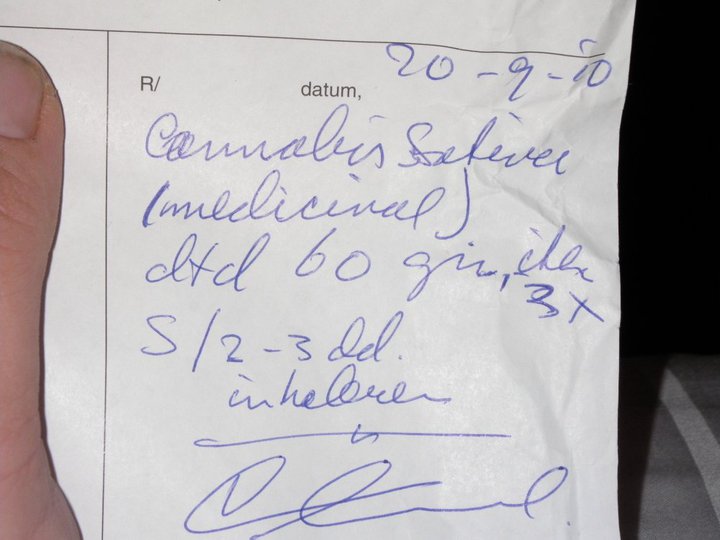 20-9-10
R/ datum,
Cannabis Sativa
(medicinal)
dtd 60 gr, iter
3x
S/2-3 dd.
inhaleren